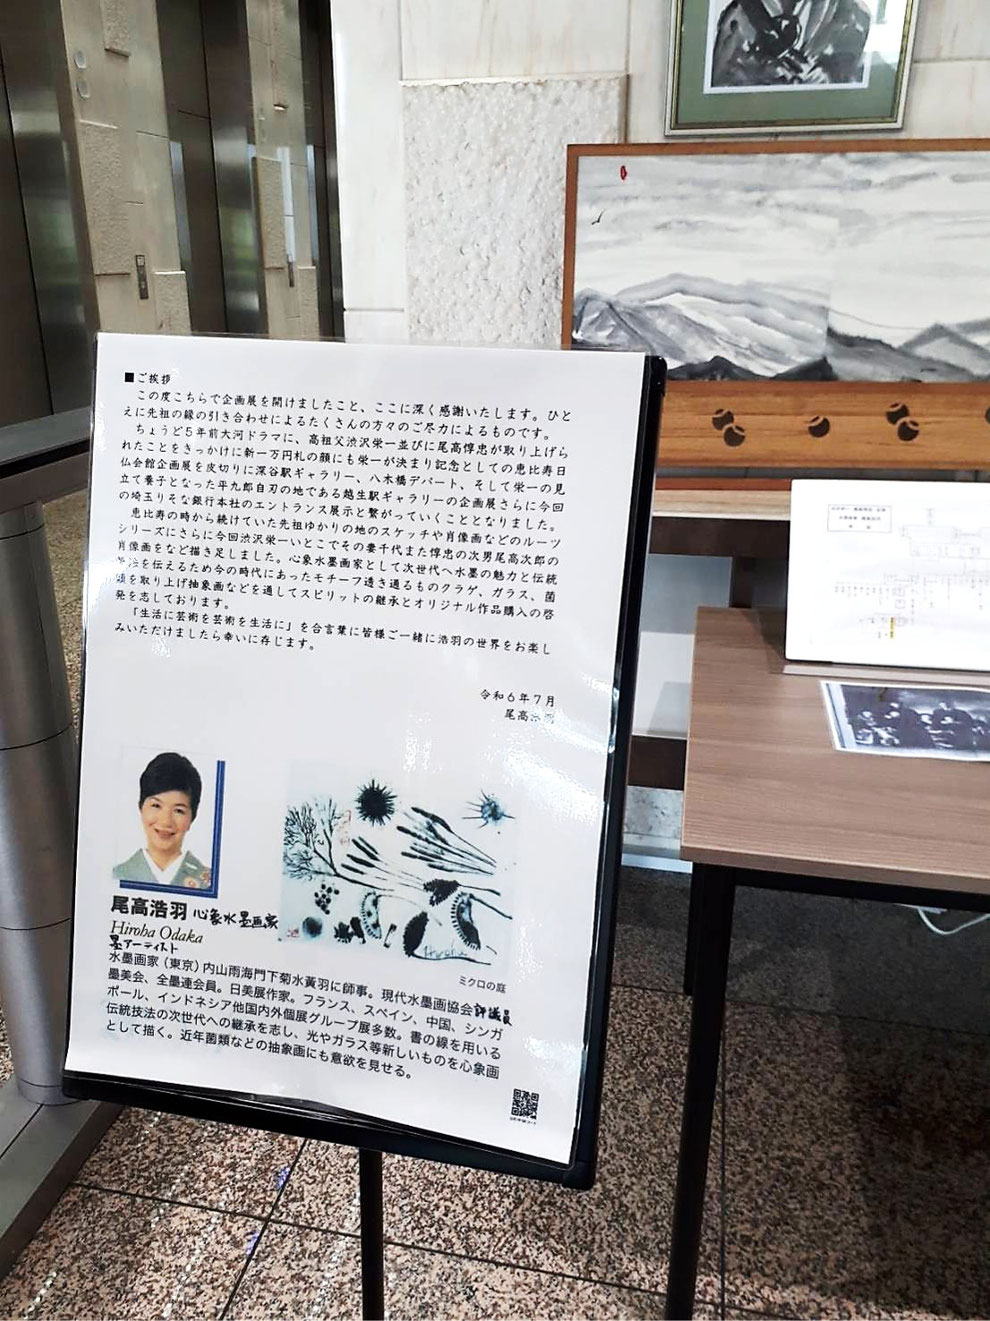 ■ご挨拶
この度こちらで企画展を開けましたこと、ここに深く感謝いたします。ひと
えに先祖の縁の引き合わせによるたくさんの方々のご尽力によるものです。
ちょうど5年前大河ドラマに、高祖父渋沢栄一並びに尾高惇忠が取り上げら
れたことをきっかけに新一万円札の顔にも栄一が決まり記念としての恵比寿日
仏会館企画展を皮切りに深谷駅ギャラリー、八木橋デパート、そして栄一の見
立て養子となった平九郎自刃の地である越生駅ギャラリーの企画展さらに今回
の埼玉りそな銀行本社のエントランス展示と繋がっていくこととなりました。
恵比寿の時から続けていた先祖ゆかりの地のスケッチや肖像画などのルーツ
シリーズにさらに今回渋沢栄一いとこでその妻千代また惇忠の次男尾高次郎の
肖像画をなど描き足しました。心象水墨画家として次世代へ水墨の魅力と伝統
を伝えるため今の時代にあったモチーフ透き通るものクラゲ、ガラス、菌
類を取り上げ抽象画などを通してスピリットの継承とオリジナル作品購入の啓
発を志しております。
「生活に芸術を芸術を生活に」を合言葉に皆様ご一緒に浩羽の世界をお楽し
みいただけましたら幸いに存じます。
令和6年7月
尾高浩羽
尾高浩羽 心象水墨画家
Hiroha Odaka
墨アーティスト
水墨画家（東京）内山雨海門下菊水黃羽に師事。現代水墨画協会評議員
墨美会、全墨連会員。日美展作家。フランス、スペイン、中国、シンガ
ポール、インドネシア他国内外個展グループ展多数。書の線を用いる
伝統技法の次世代への継承を志し、光やガラス等新しいものを心象画
として描く。近年菌類などの抽象画にも意欲を見せる。
ミクロの庭